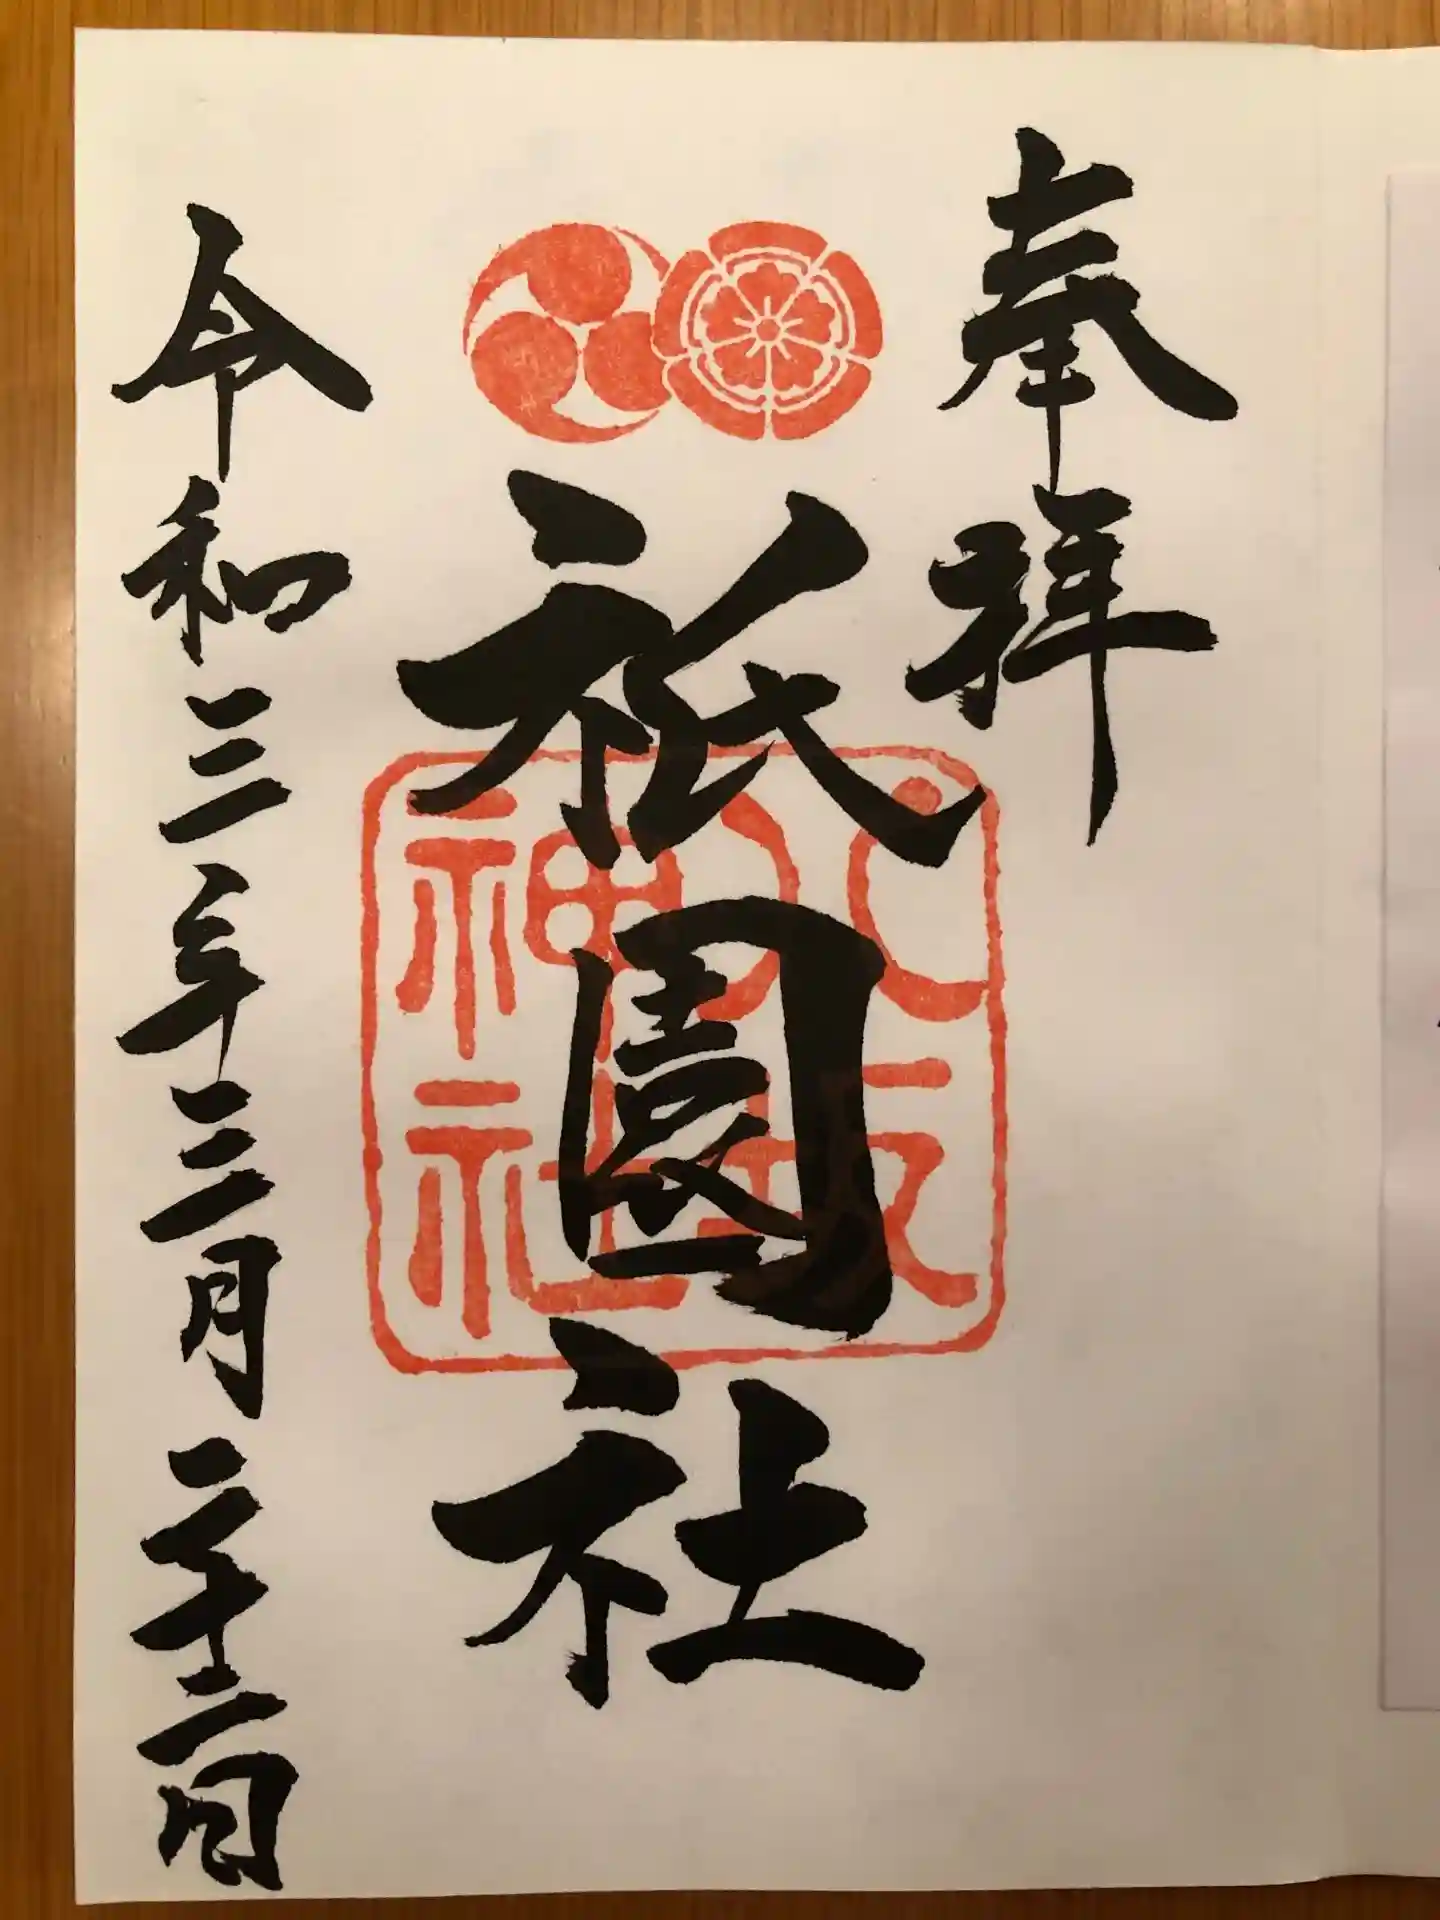 奉拝
祇園社
八坂
神社
令和三年三月二十二日